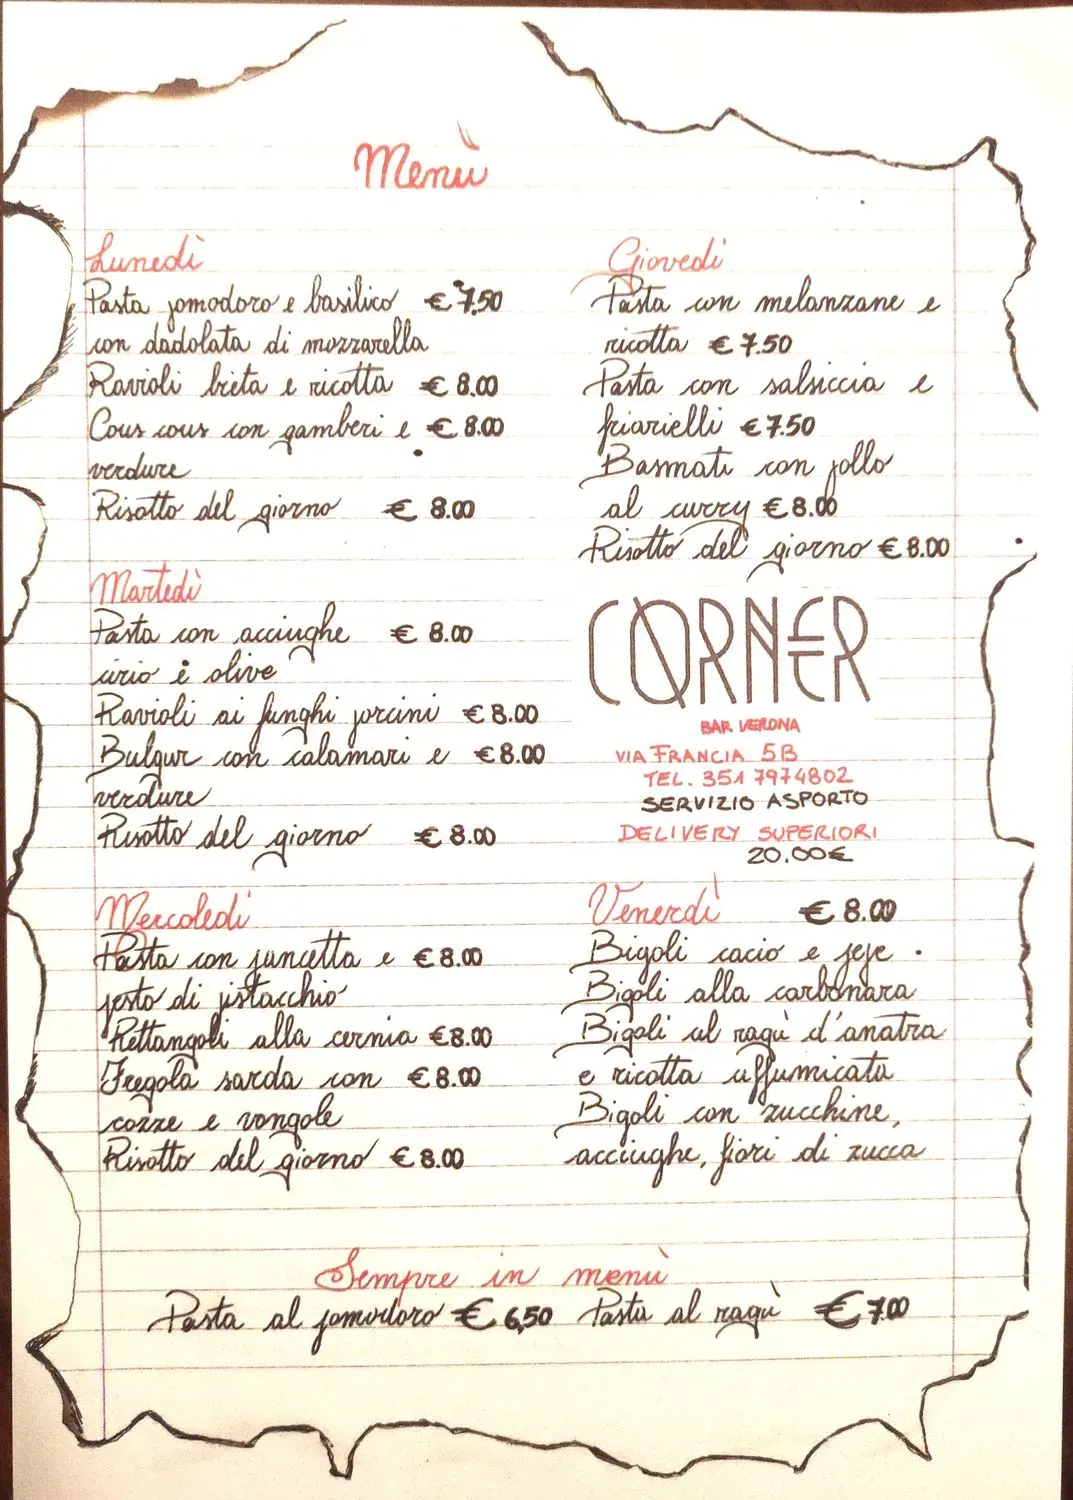 Menù
Lunedì
Pasta pomodoro e basilico € 7.50
con dadolata di mozzarella
Ravioli bieta e ricotta € 8.00
Cous cous con gamberi e € 8.00
verdure
Risotto del giorno € 8.00
Martedì
Pasta con acciughe € 8.00
cirio e olive
Ravioli ai funghi porcini € 8.00
Bulgur con calamari e € 8.00
verdure
Risotto del giorno € 8.00
Mercoledì
Pasta con pancetta e € 8.00
pesto di pistacchio
Rettangoli alla cernia € 8.00
Fregola sarda con € 8.00
cozze e vongole
Risotto del giorno € 8.00
Giovedì
Pasta con melanzane e
ricotta € 7.50
Pasta con salsiccia e
friarielli € 7.50
Basmati con pollo
al curry € 8.00
Risotto del giorno € 8.00
CORNER
BAR VERONA
VIA FRANCIA 5B
TEL. 351 7974802
SERVIZIO ASPORTO
DELIVERY SUPERIORI
20.00€
Venerdì € 8.00
Bigoli cacio e pepe
Bigoli alla carbonara
Bigoli al ragù d'anatra
e ricotta affumicata
Bigoli con zucchine,
acciughe, fiori di zucca
Sempre in menù
Pasta al pomodoro € 6,50 Pasta al ragù € 7.00